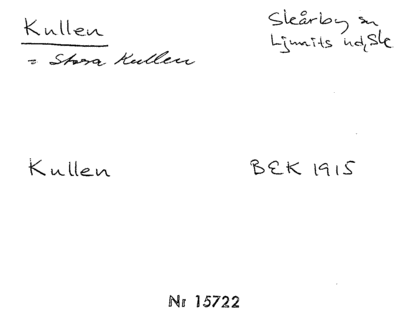 Kullen
Skårby sn
= Stora Kullen
Ljunits hd, Sk
Kullen
BEK 1915
Nr 15722